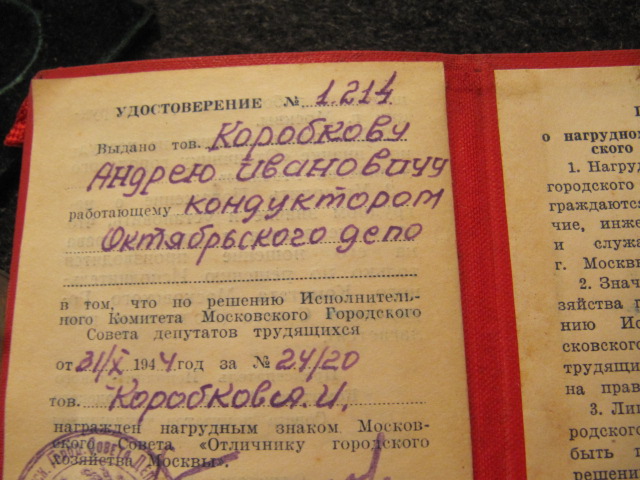 УДОСТОВЕРЕНИЕ № 1.214
Выдано тов. Коробкову
Андрею Ивановичу
работающему кондуктором
Октябрьского депо
в том, что по решению Исполнитель-
ного Комитета Московского Городского
Совета депутатов трудящихся
от 31/X 1944 год за № 24/20
тов. Коробков А. И.
награжден нагрудным знаком Москов-
ского Совета «Отличнику городского
хозяйства Москвы».
о нагрудно
ского
1. Нагруд
городского
граждаются
чие, инже
и служа
г. Москвы
2. Знач
зяйства г
нию Ис
сковского
трудящи
на прав
3. Ли
родског
быть
решени